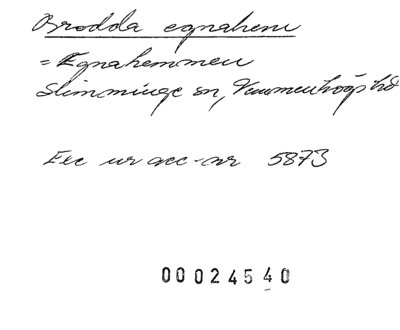 Brodda egnahem
= Egnahemmen
Slimminge sn, Vemmenhögs hd
Exc ur acc-nr 5873
00024540